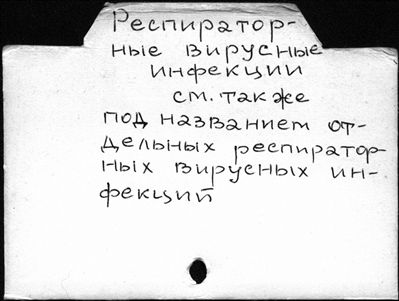 Респиратор-
ные вирусные
инфекции
см. также
под названием от-
дельных респиратор-
ных вирусных ин-
фекций